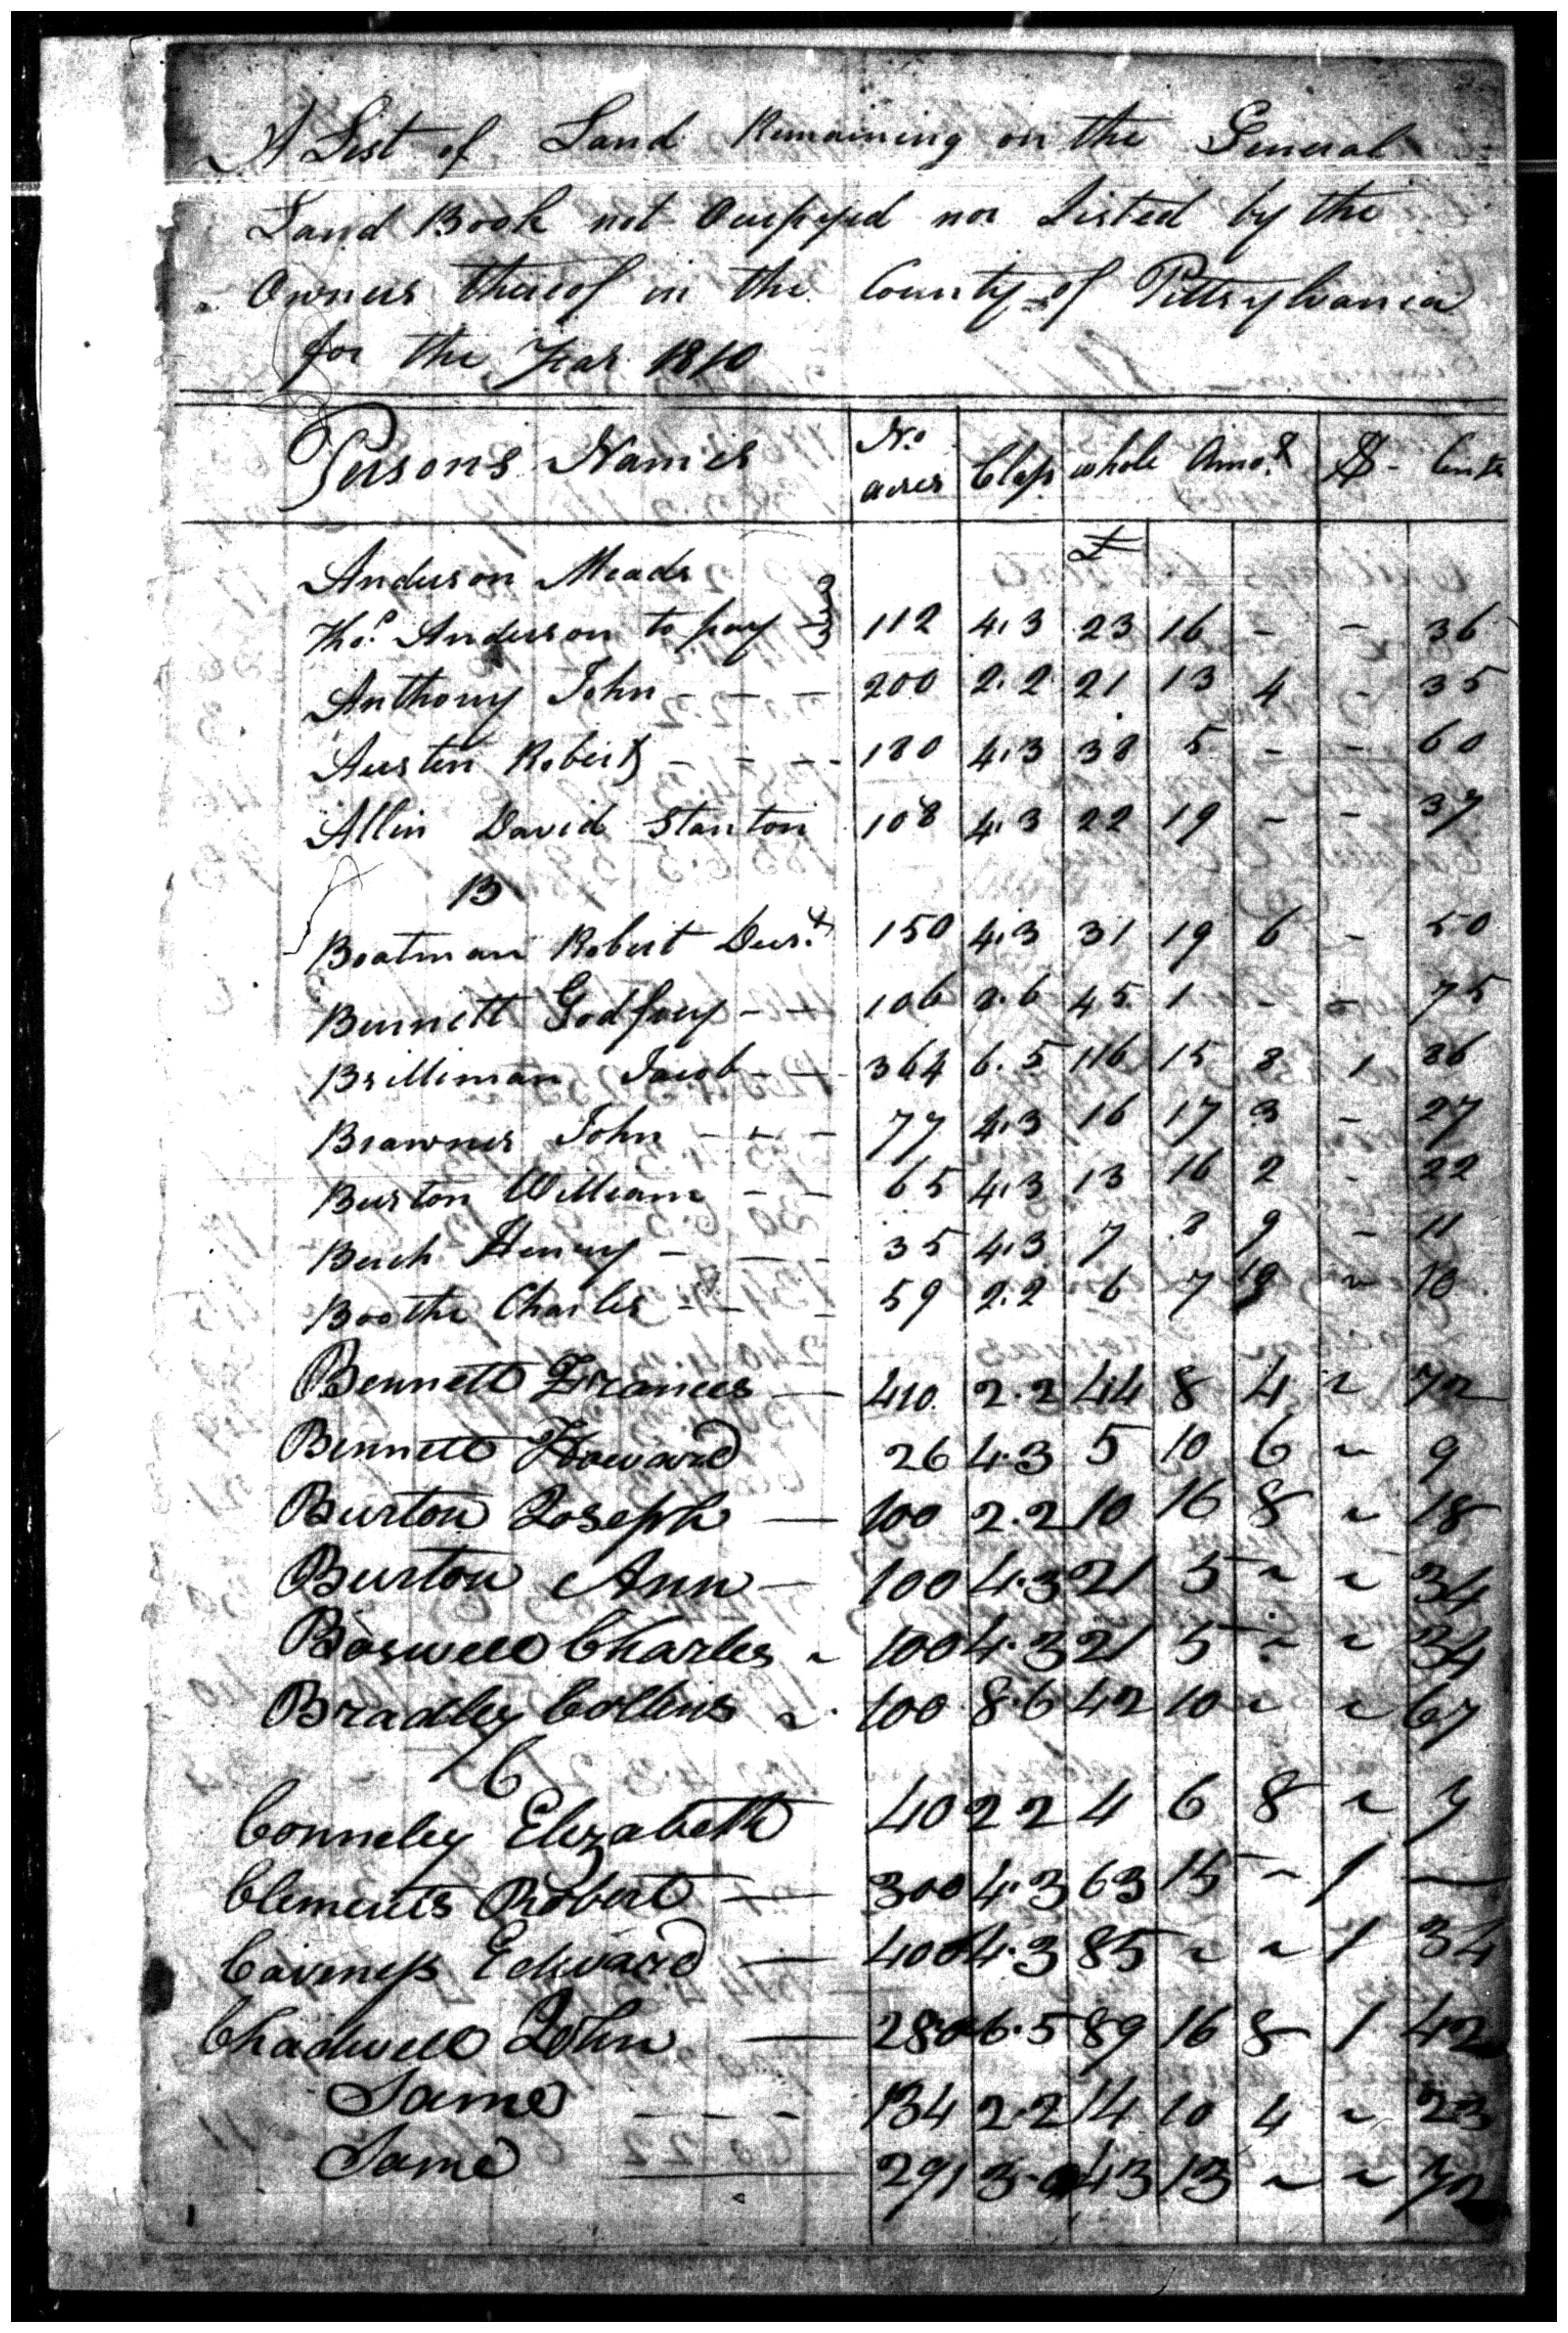 A List of Land Remaining on the General
Land Book not Occupyed nor Listed by the
Owners thereof in the County of Pittsylvania
for the Year 1810
Persons Names No. acres Class whole Amot. $ - Cents
£
Anderson Meads
Thos. Anderson to pay 112 4.3 23 16 - - 36
Anthony John - - - 200 2.2 21 13 4 - 35
Austen Robert - - - - 180 4.3 38 5 - - 60
Allin David Stanton 108 4.3 22 19 - - 37
B
Boatman Robert 150 4.3 31 19 6 - 50
Burnett Godfrey - - 106 8.6 45 1 - - 75
Brilliman Jacob - - - 364 6.5 116 15 8 1 86
Brawner John - - - 77 4.3 16 17 3 - 27
Burton William - - 65 4.3 13 16 2 - 22
Burch Henry - - - 35 4.3 7 8 9 - 11
Boothe Charles - - - 59 2.2 6 7 10
Bennett Frances — 410 2.2 44 8 4 ~ 72
Bennett Howard 26 4.3 5 10 6 ~ 9
Burton Joseph — 100 2.2 10 16 8 ~ 18
Burton Ann — 100 4.3 21 5 ~ ~ 34
Boswell Charles ~ 100 4.3 21 5 ~ ~ 34
Bradley Collins ~ 100 8.6 42 10 ~ ~ 67
C
Conneley Elizabeth 40 2 2 4 6 8 ~ 7
Clements Robert — 300 4.3 63 15 ~ 1 —
Caviness Edward — 400 4.3 85 ~ ~ 1 34
Chadwell John — 280 6.5 89 16 8 1 42
Same - - - 134 2.2 14 10 4 ~ 23
Same — 291 3.0 43 13 ~ ~ 72